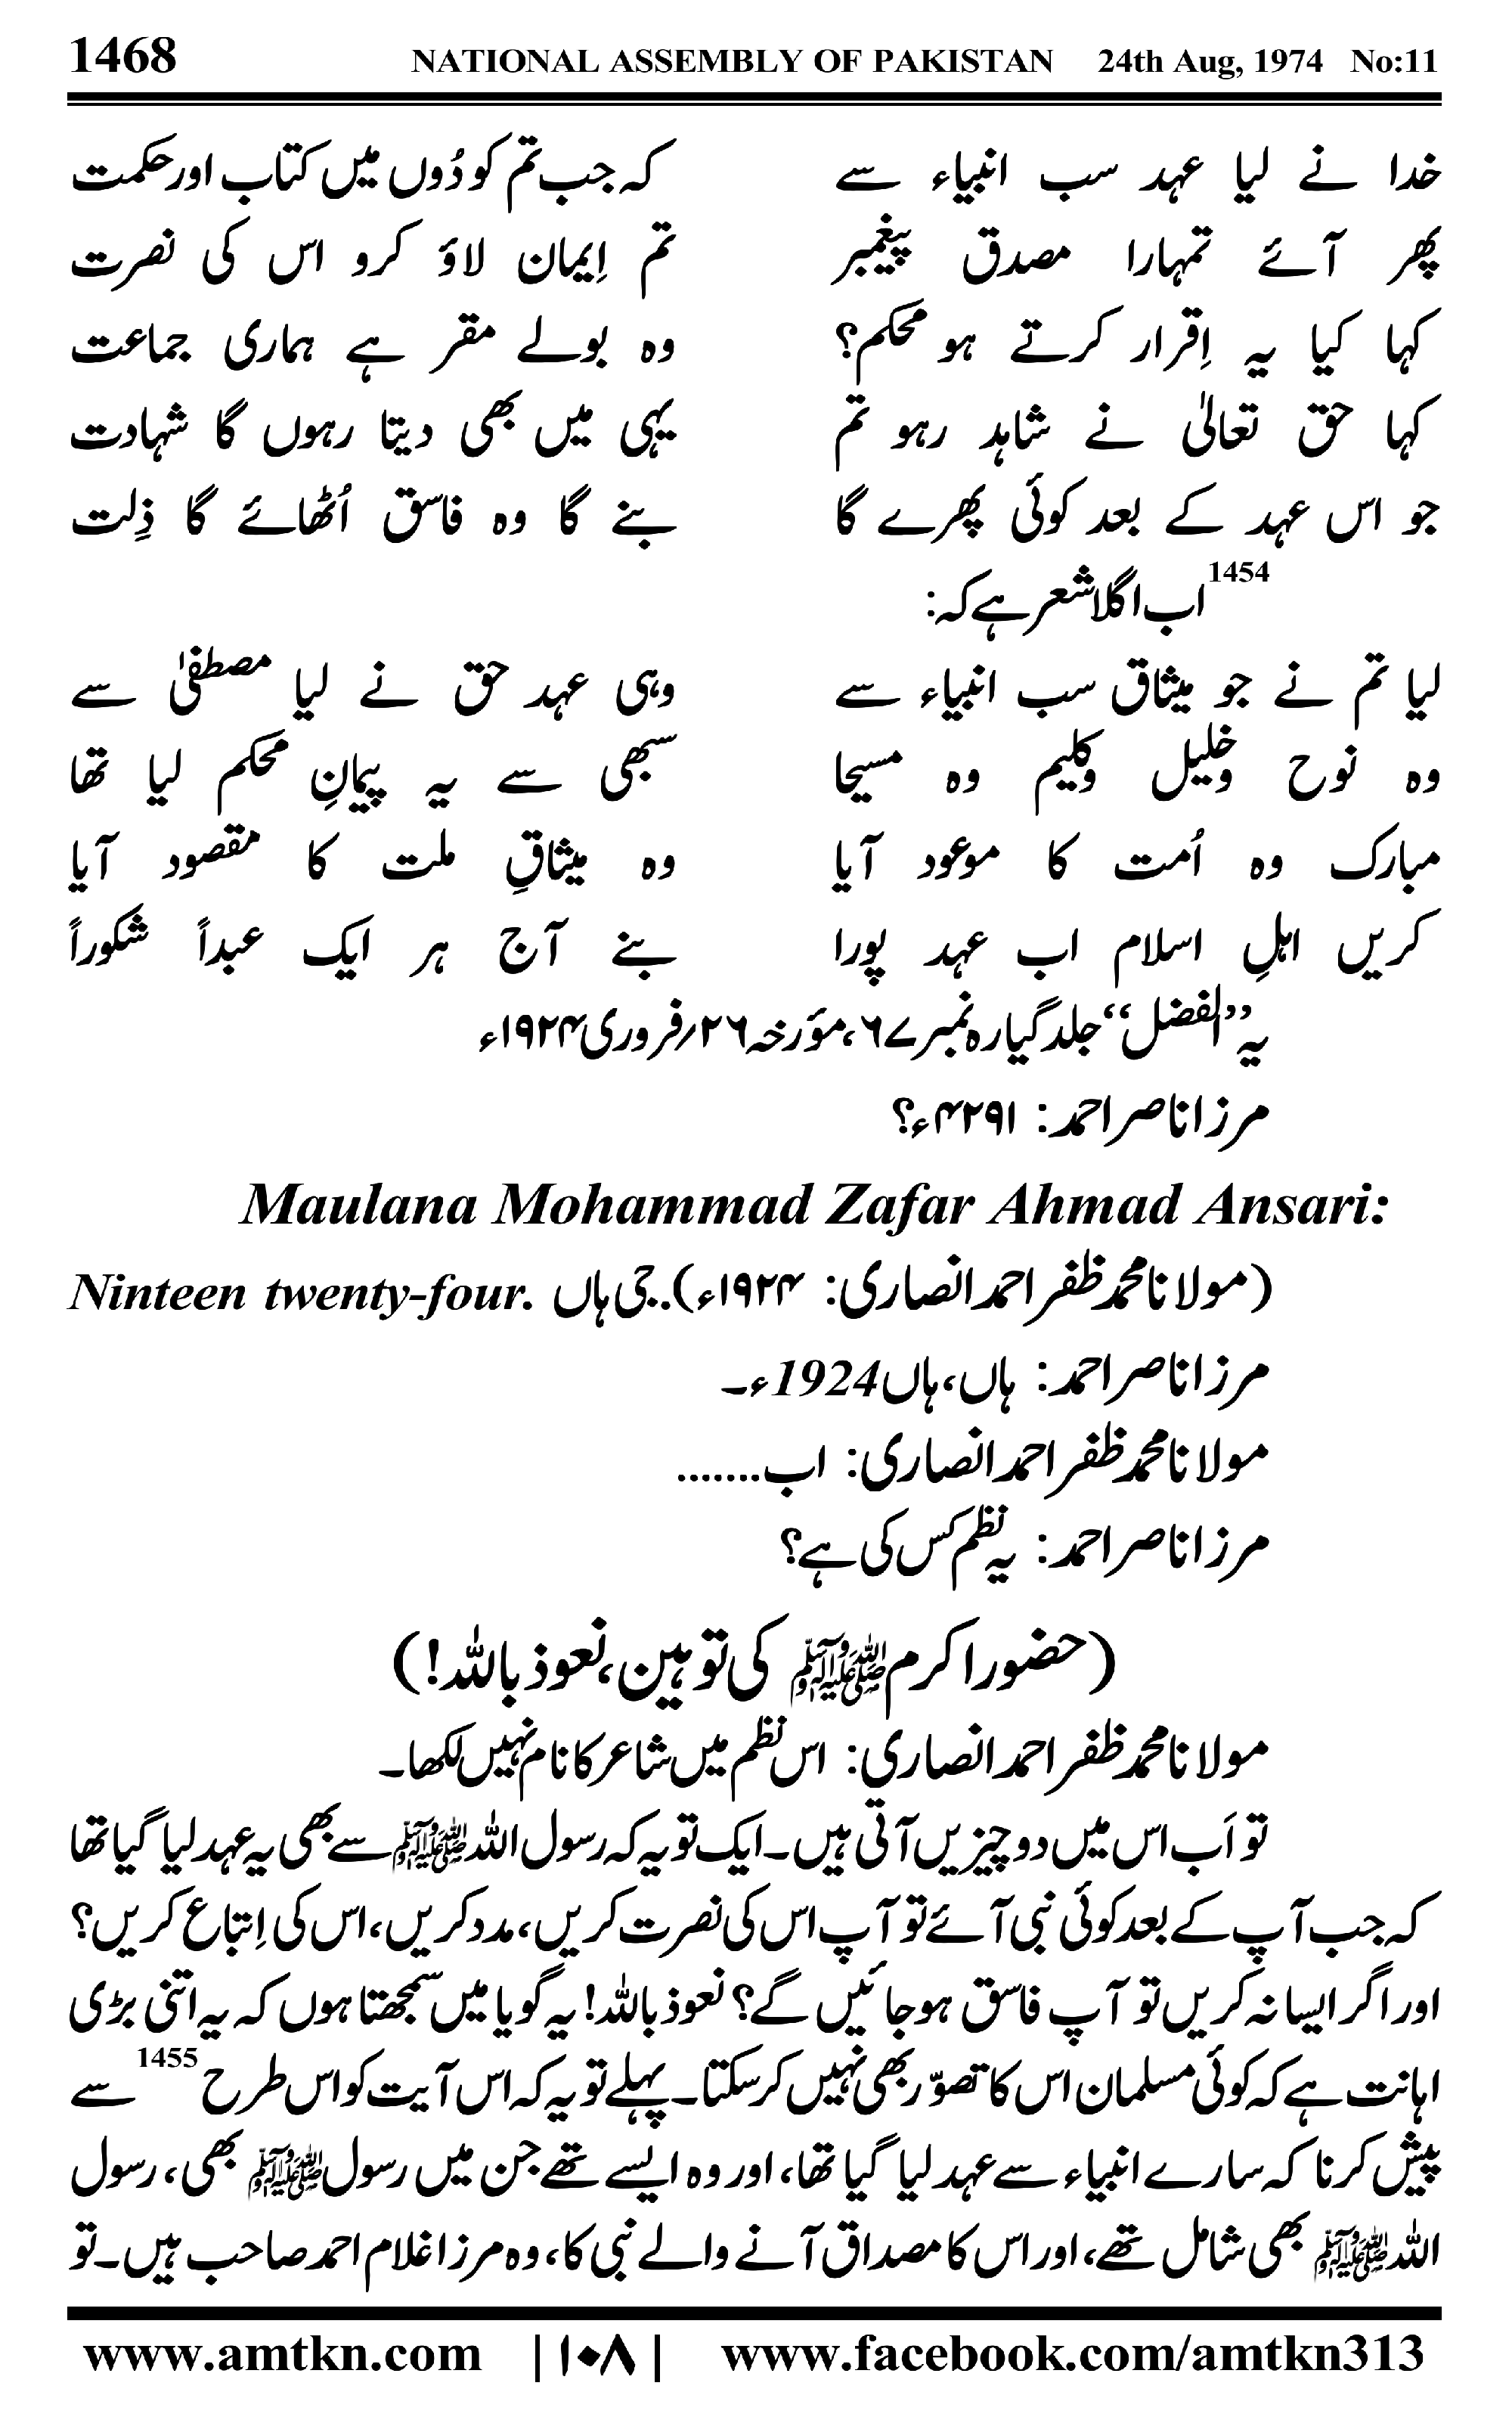 1468 NATIONAL ASSEMBLY OF PAKISTAN 24th Aug, 1974 No:11
خدا نے لیا عہد سب انبیاء سے کہ جب تم کو دُوں میں کتاب اور حکمت
پھر آئے تمہارا مصدق پیغمبر تم اِیمان لاؤ کرو اس کی نصرت
کہا کیا یہ اِقرار کرتے ہو محکم؟ وہ بولے مقر ہے ہماری جماعت
کہا حق تعالیٰ نے شاہد رہو تم یہی میں بھی دیتا رہوں گا شہادت
جو اس عہد کے بعد کوئی پھرے گا بنے گا وہ فاسق اُٹھائے گا ذِلت
1454اب اگلا شعر ہے کہ:
لیا تم نے جو میثاق سب انبیاء سے وہی عہد حق نے لیا مصطفیٰ سے
وہ نوح وخلیل وکلیم وہ مسیحا سبھی سے یہ پیمانِ محکم لیا تھا
مبارک وہ اُمت کا موعود آیا وہ میثاقِ ملت کا مقصود آیا
کریں اہلِ اسلام اب عہد پورا بنے آج ہر ایک عبداً شکوراً
یہ ’’الفضل‘‘ جلد گیارہ نمبر ۶۷، مؤرخہ ۲۶؍فروری ۱۹۲۴ء
مرزا ناصر احمد: ۴۲۹۱ء؟
Maulana Mohammad Zafar Ahmad Ansari:
(مولانا محمد ظفر احمد انصاری: ۱۹۲۴ء)..جی ہاں Ninteen twenty-four.
مرزا ناصر احمد: ہاں، ہاں 1924ء۔
مولانا محمد ظفر احمد انصاری: اب.......
مرزا ناصر احمد: یہ نظم کس کی ہے؟
(حضور اکرم ﷺ کی توہین، نعوذ باللہ!)
مولانا محمد ظفر احمد انصاری: اس نظم میں شاعر کا نام نہیں لکھا۔
تو اَب اس میں دو چیزیں آتی ہیں۔ ایک تو یہ کہ رسول اللہ ﷺ سے بھی یہ عہد لیا گیا تھا
کہ جب آپ کے بعد کوئی نبی آئے تو آپ اس کی نصرت کریں، مدد کریں، اس کی اِتباع کریں؟
اور اگر ایسا نہ کریں تو آپ فاسق ہو جائیں گے؟ نعوذ باللہ! یہ گویا میں سمجھتا ہوں کہ یہ اتنی بڑی
اہانت ہے کہ کوئی مسلمان اس کا تصوّر بھی نہیں کر سکتا۔ پہلے تو یہ کہ اس آیت کو اس طرح 1455 سے
پیش کرنا کہ سارے انبیاء سے عہد لیا گیا تھا، اور وہ ایسے تھے جن میں رسول ﷺ بھی، رسول
اللہ ﷺ بھی شامل تھے، اور اس کا مصداق آنے والے نبی کا، وہ مرزا غلام احمد صاحب ہیں۔ تو
www.amtkn.com |۱۰۸| www.facebook.com/amtkn313